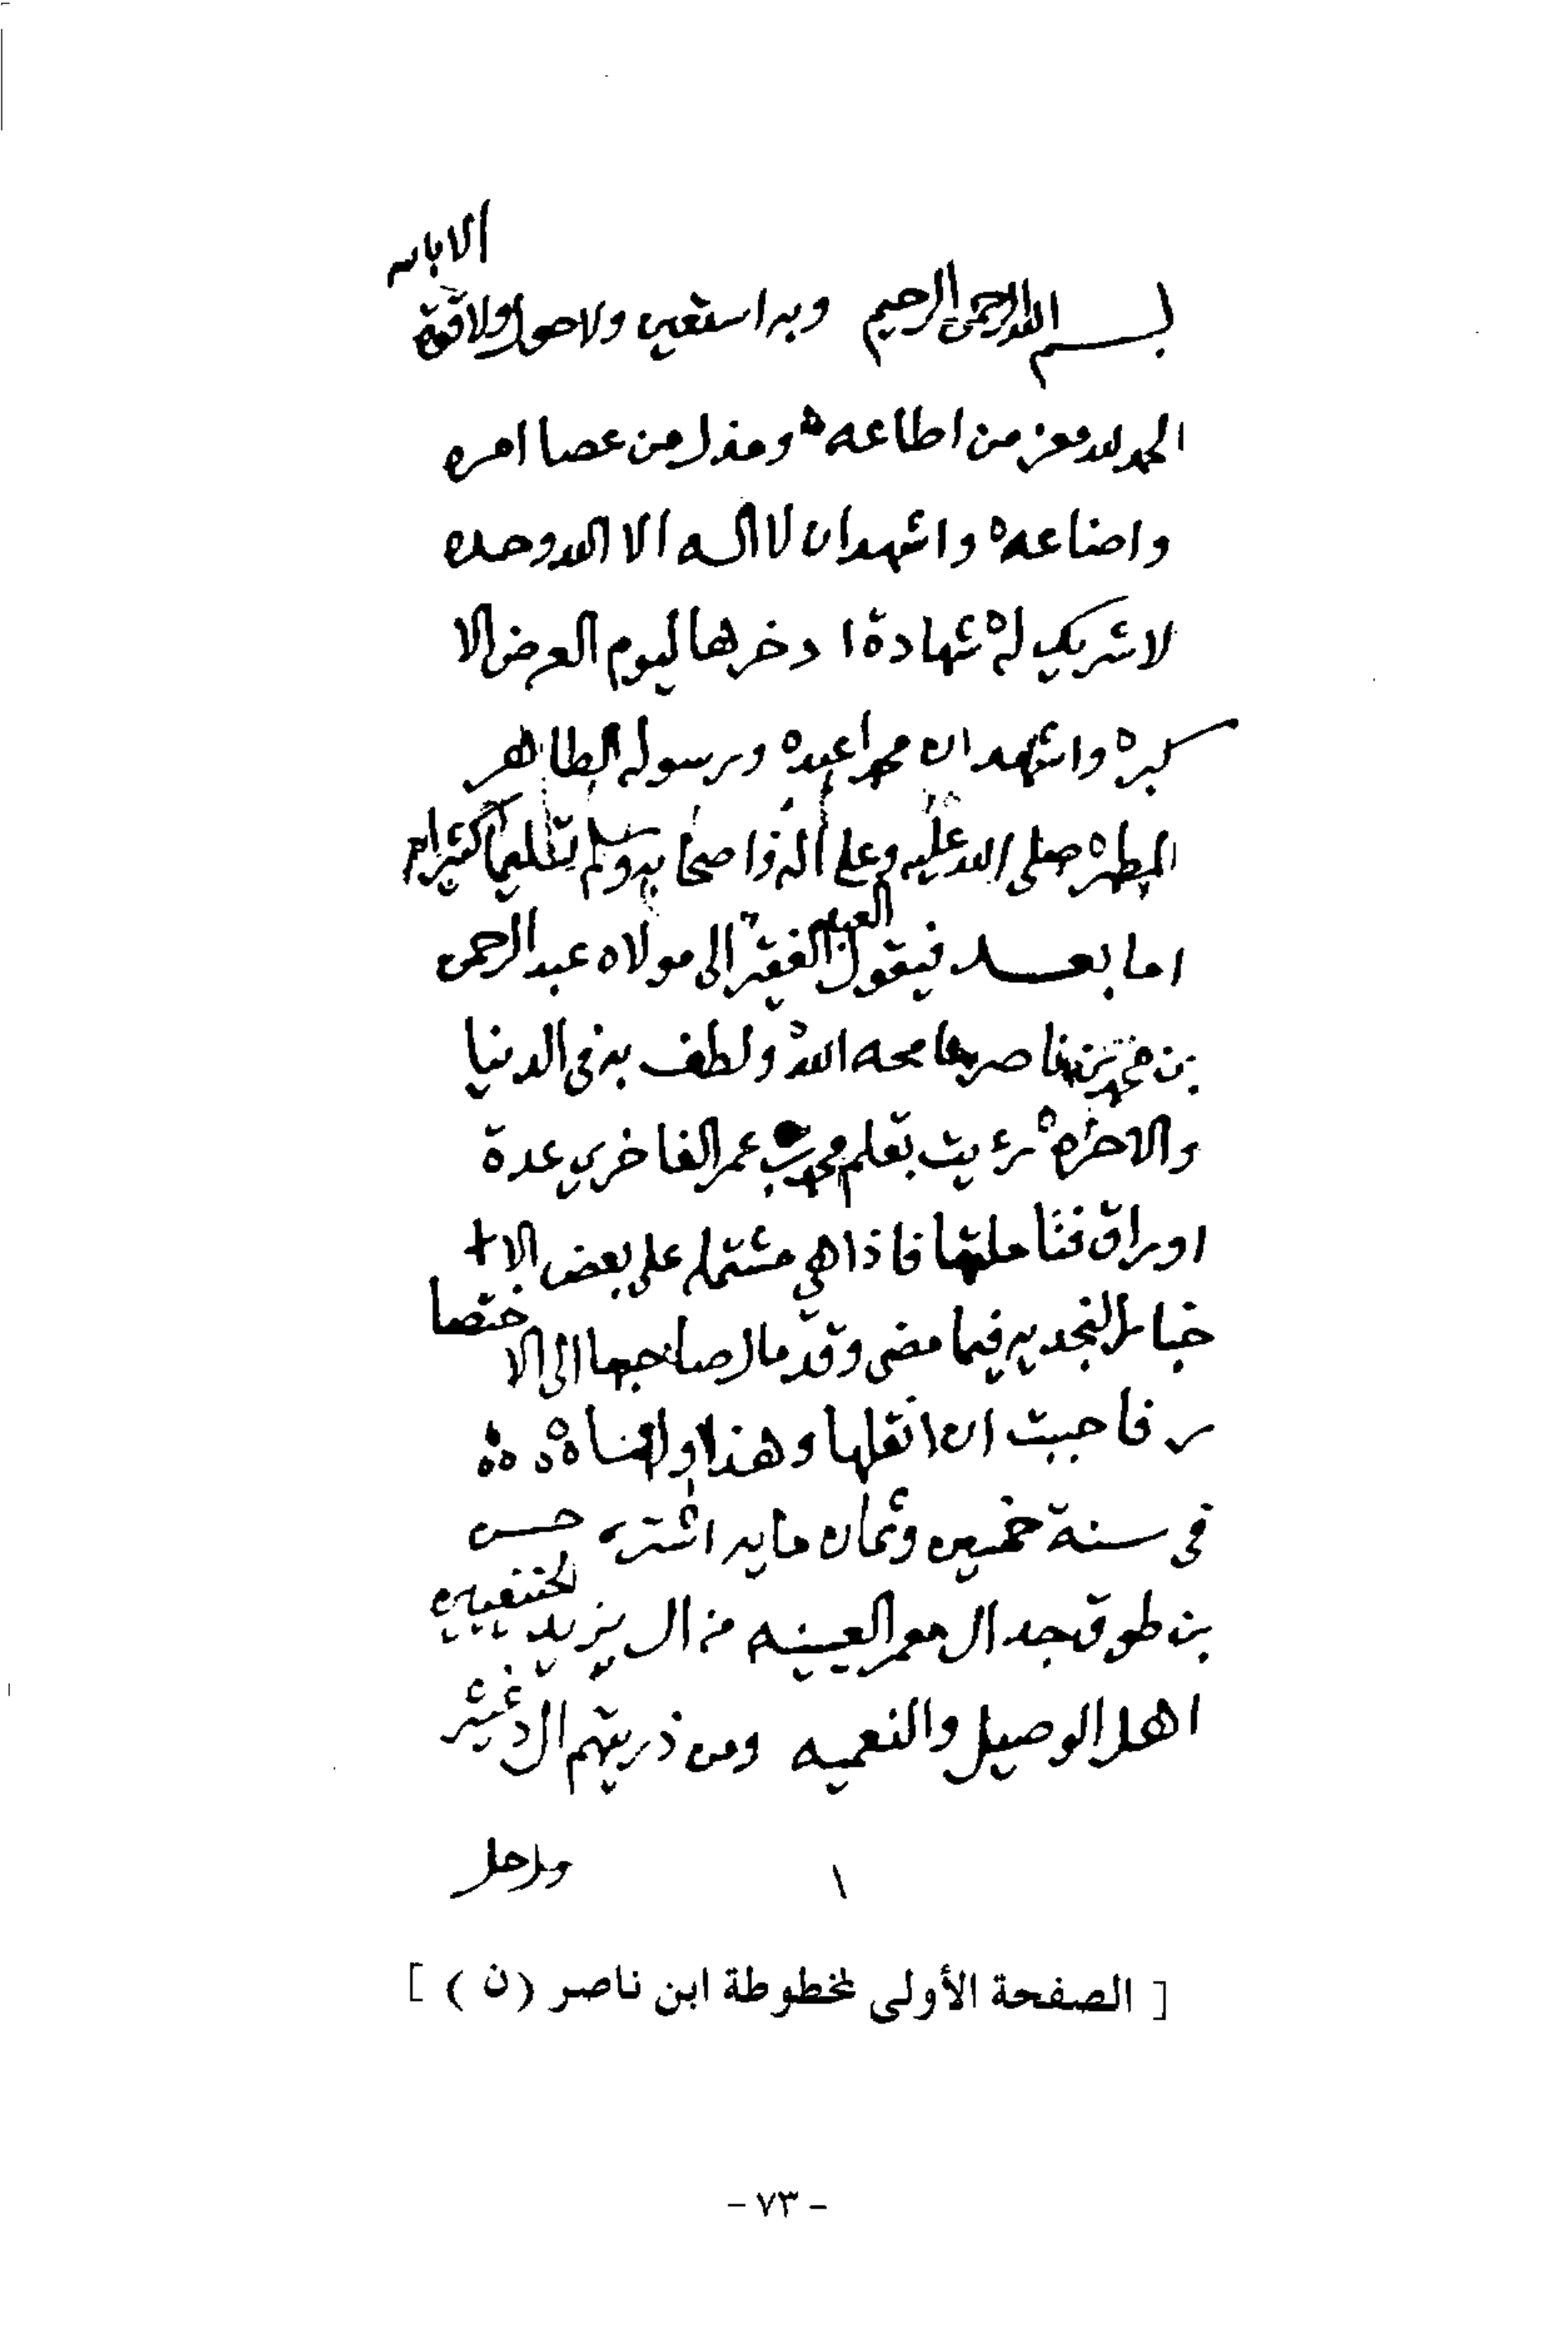 بسم الله الرحمن الرحيم وبه استعين ولا حول ولا قوة الا بالله
الحمد لله معز من اطاعه ومذل من عصا امره
واضاعه واشهد ان لا اله الا الله وحده
لا شريك له شهادة ادخرها ليوم العرض الا
كبره واشهد ان محمدا عبده ورسوله الطاهر
المطهر صلى الله عليه وعلى اله واصحابه وسلم تسليما كثيرا
اما بعد فيقول العبد الفقير الى مولاه عبد الرحمن
بن محمد بن ناصر سامحه الله ولطف به في الدنيا
والاخره رءيت بقلم محمد بن عمر الفاخري عدة
اوراق فتاملتها فاذا هي مشتمله على بعض الا
خبار النجديه فيما مضى وقد مال صاحبها الى الاختصا
ر فاحببت ان انقلها وهذا اول
في سنة خمسين وثمان مايه اشترى حسن
بن طوق جد ال معمر العيينه من ال يزيد الحنفيين
اهل الوصيل والنعميه ومن ذريتهم ال دغيثر
١
[ الصفحة الأولى لمخطوطة ابن ناصر (ن) ]
- ٧٣ -